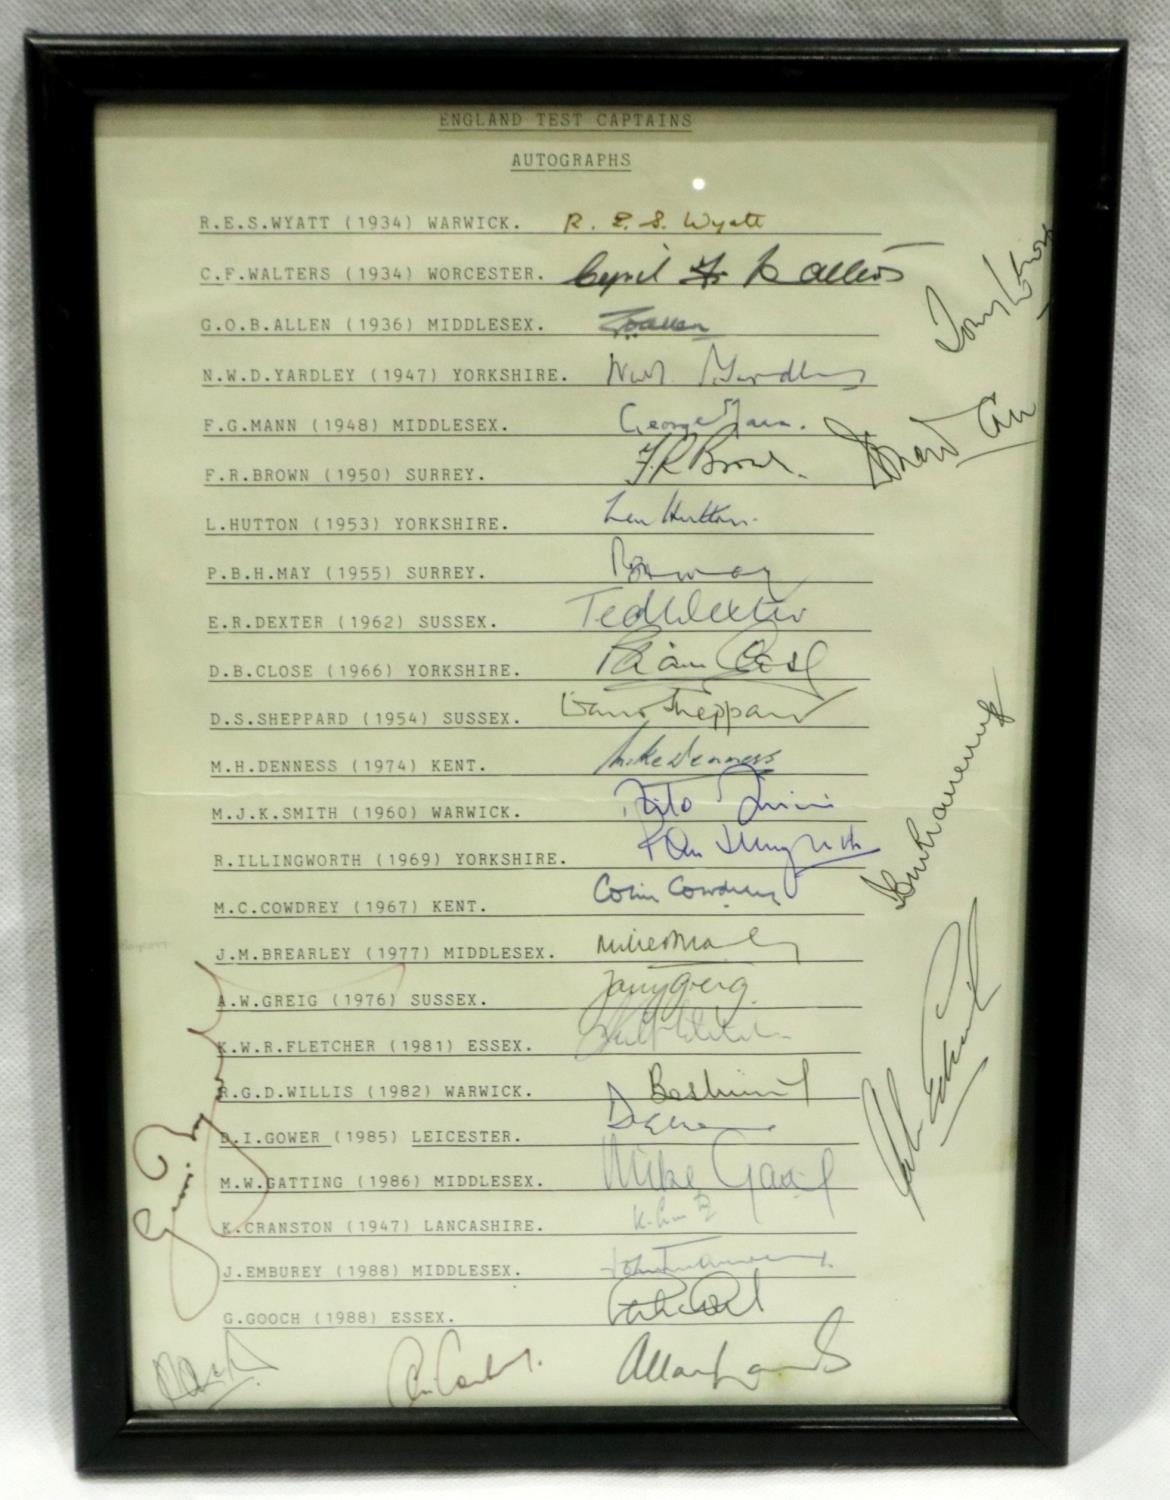 ENGLAND TEST CAPTAINS
AUTOGRAPHS
R.E.S.WYATT (1934) WARWICK. R. E. S. Wyatt
C.F.WALTERS (1934) WORCESTER. Cyril F. Walters
G.O.B.ALLEN (1936) MIDDLESEX. Allen
N.W.D.YARDLEY (1947) YORKSHIRE. Yardley
F.G.MANN (1948) MIDDLESEX. George Mann.
F.R.BROWN (1950) SURREY. F.R. Brown.
L.HUTTON (1953) YORKSHIRE. Len Hutton.
P.B.H.MAY (1955) SURREY. May
E.R.DEXTER (1962) SUSSEX. Ted Dexter
D.B.CLOSE (1966) YORKSHIRE. Brian Close
D.S.SHEPPARD (1954) SUSSEX. David Sheppard
M.H.DENNESS (1974) KENT. Mike Denness
M.J.K.SMITH (1960) WARWICK.
R.ILLINGWORTH (1969) YORKSHIRE. Ray Illingworth
M.C.COWDREY (1967) KENT. Colin Cowdrey
J.M.BREARLEY (1977) MIDDLESEX.
A.W.GREIG (1976) SUSSEX. Tony Greig.
K.W.R.FLETCHER (1981) ESSEX.
R.G.D.WILLIS (1982) WARWICK.
D.I.GOWER (1985) LEICESTER.
M.W.GATTING (1986) MIDDLESEX. Mike Gatting
K.CRANSTON (1947) LANCASHIRE.
J.EMBUREY (1988) MIDDLESEX.
G.GOOCH (1988) ESSEX.
Allan Lamb
Tony Lewis
Donald Carr
John Edrich